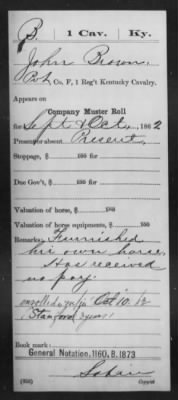 B. 1 Cav. Ky.
John Brown
Pvt, Co. F, 1 Reg't Kentucky Cavalry.
Appears on
Company Muster Roll
for Sept & Oct, 1862
Present or absent Present
Stoppage, $ 100 for
Due Gov't, $ 100 for
Valuation of horse, $ 100
Valuation of horse equipments, $ 100
Remarks: Furnished
his own horse.
Has received
no pay.
enrolled Oct 10
Stanford 3 years
Book mark:
General Notation. 1160. B. 1873
(358) Copyist